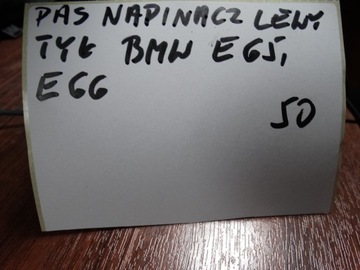 PAS NAPINACZ LEWY
TYŁ BMW E65,
E66
50